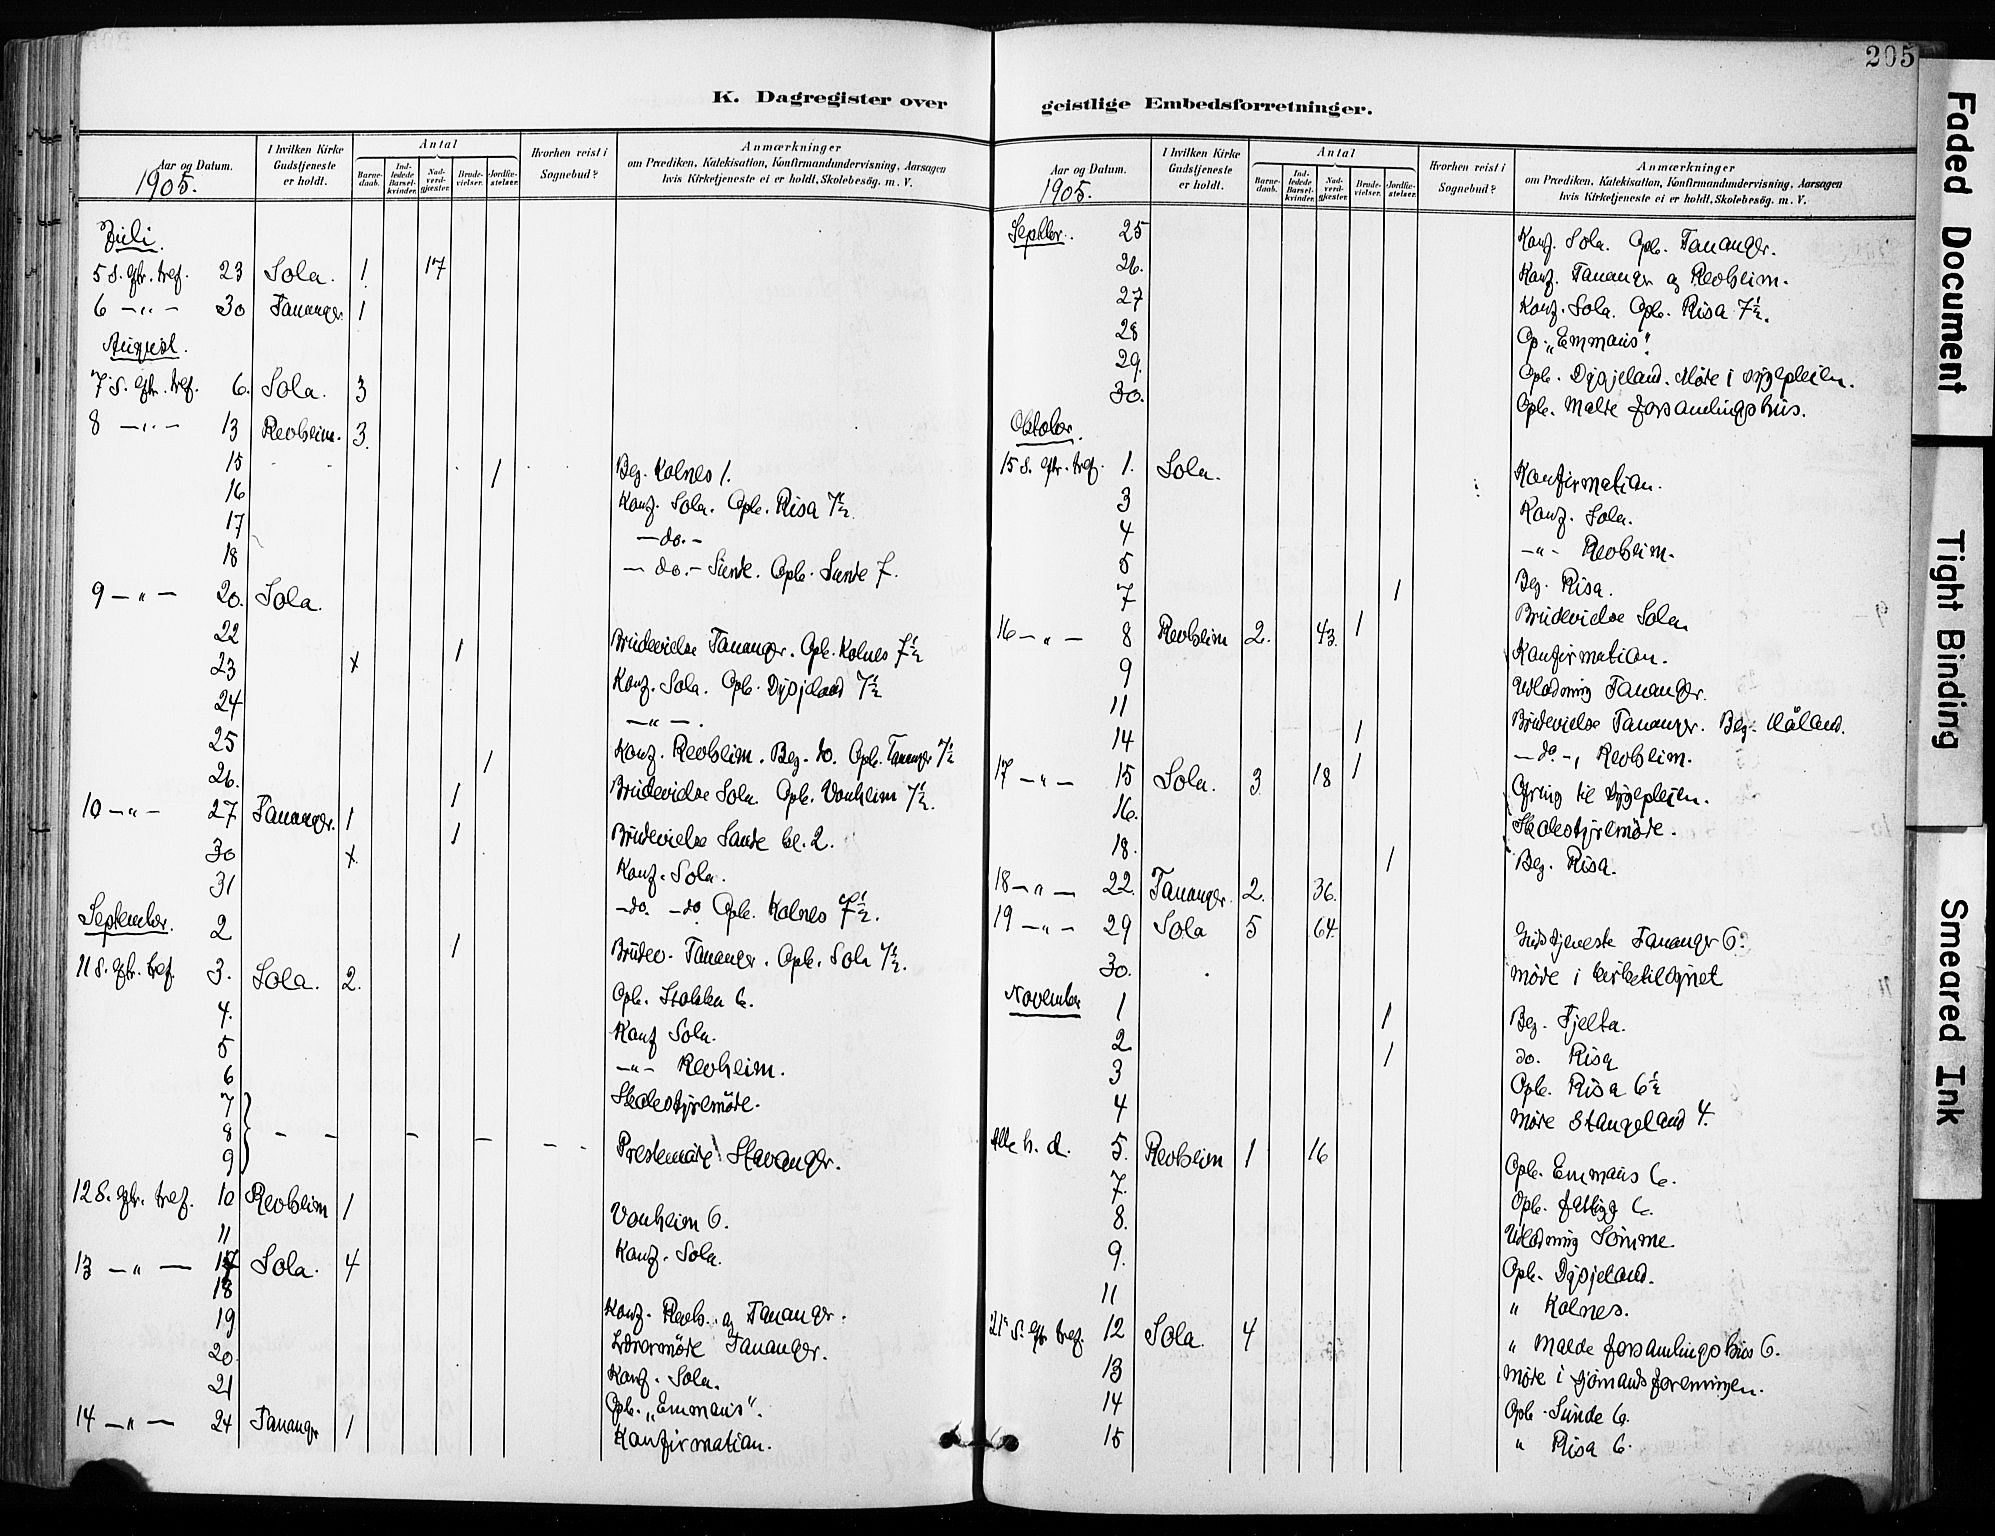 205
K. Dagregister over
geistlige Embedsforretninger.
Aar og Datum. | I hvilken Kirke Gudstjeneste er holdt. | Antal | Barnedaab. | Indledede Barselkvinder. | Nadverdgjester. | Brudevielser. | Jordfæstelser. | Hvorhen reist i Sognebud? | Anmærkninger om Prædiken, Katekisation, Konfirmandundervisning, Aarsagen hvis Kirketjeneste ei er holdt, Skolebesøg. m. V.
1905.
Juli.
5 S. eftr. tref. 23 Sola. 1 17
6 — „ — 30 Tananger 1
August.
7 S. eftr. tref. 6. Sola. 3
8 — „ — 13 Revheim. 3.
15 1 Beg. Kolnes 1.
16 Konf. Sola. Opb. Risa 7½
17 — do. —
18 — do. — Sunde. Opb. Sunde 7.
9 — „ — 20. Sola.
22 1 Brudevielse Tananger. Opb. Kolnes 7½
23 x Konf. Sola. Opb. Dysjeland 7½
24 — „ —.
25 1 Konf. Revheim. Beg. do. Opb. Tananger 7½
26. 1 Brudevielse Sola. Opb. Vonheim 7½.
10 — „ — 27 Tananger. 1 1 Brudevielse Sande kl. 2.
30 x Konf. Sola.
31 — do. — do. Opb. Kolnes 7½.
September. 2 1 Brudev. Tananger. Opb. Sola 7½.
11 S. eftr. tref. 3. Sola. 2. Opb. Stokka 6.
4. Konf Sola.
5 — „ — Revheim.
6 Skolestyremöde.
7
8 Prestemöde i Stavanger.
9
12 S. eftr. tref. 10 Revheim 1 Vonheim 6.
11 Konf. Sola.
13 — „ — 17 Sola. 4
18 Konf. Revh. og Tananger.
19 Lærermöde Tananger.
20. Konf. Sola.
21 Opb. „Emmaus“.
14 — „ — 24 Tananger 1 Konfirmation.
Aar og Datum. | I hvilken Kirke Gudstjeneste er holdt. | Antal | Barnedaab. | Indledede Barselkvinder. | Nadverdgjester. | Brudevielser. | Jordfæstelser. | Hvorhen reist i Sognebud? | Anmærkninger om Prædiken, Katekisation, Konfirmandundervisning, Aarsagen hvis Kirketjeneste ei er holdt, Skolebesøg. m. V.
1905.
Septbr. 25 Konf. Sola. Opb. Tananger.
26. Konf. Tananger og Revheim.
27 Konf. Sola. Opb. Risa 7½.
28 Op. „Emmaus“.
29. Opb. Dysjeland. Möde i sygepleien.
30. Opb. Malde forsamlingshus.
Oktober.
15 S. eftr. tref. 1. Sola. Konfirmation.
3 Konf. Sola.
4 — „ — Revheim.
5 1 Beg. Risa.
7 1 Brudevielse Sola
16 — „ — 8 Revheim 2. 43. Konfirmation.
9 Utlodning Tananger.
11 1 Brudevielse Tananger. Beg. Håland.
14 1 — do —, Revheim.
17 — „ — 15 Sola. 3 18 Ofring til sygepleien.
16. Skolestyremöde.
18. 1 Beg. Risa.
18 — „ — 22. Tananger 2. 36.
19 — „ — 29 Sola 5 64. Gudstjeneste Tananger 6.
30. Möde i kirketilsynet
November 1 1 Beg. Fjelta.
2 1 do. Risa
3 Opb. Risa 6½
4 Möde Stangeland 4.
Alle h. d. 5. Revheim 1 16 Opb. Emmaus 6.
7. Opb. 6.
8. Utlodning Sömme.
9. Opb. Dysjeland.
11 „ Kolnes.
21 S. eftr. tref. 12 Sola. 4 „ Malde forsamlingshus 6.
13 Möde i sjömandsforeningen.
14 Opb. Sunde 6.
15 „ Risa 6.
Faded Document
Tight Binding
Smeared Ink